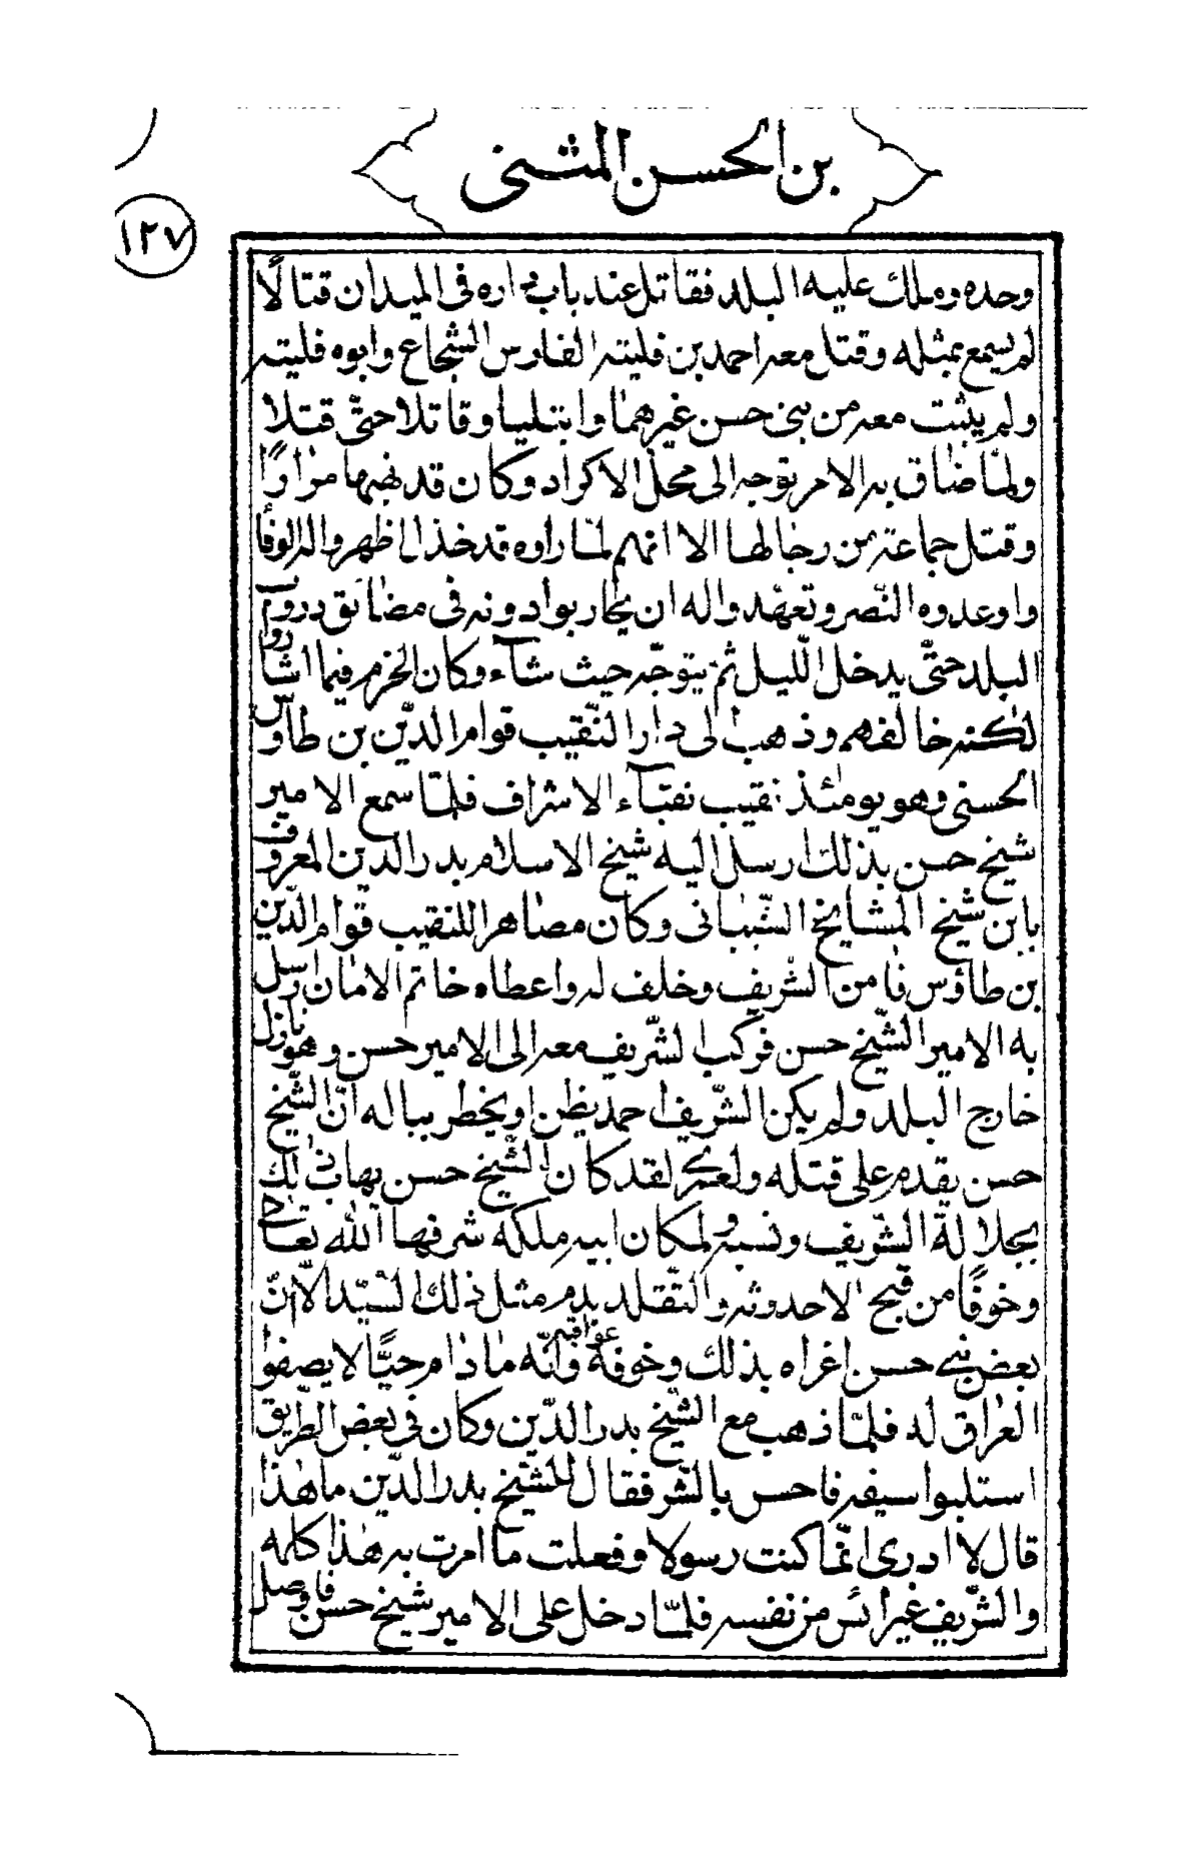 بن الحسن المثنى
١٢٧
وحده وملك عليه البلد فقاتل عند باب داره فى الميدان قتالًا
لم يسمع بمثله وقتل معه احمد بن فليته الفارس الشجاع وابوه فليته
ولم يثبت معه من بنى حسن غيرهما وابتليا وقاتلا حتّى قتلا
ولمّا ضاق به الامر توجه الى محلّ الاكراد وكان قد نهبها مرارًا
وقتل جماعة من رجالها الا انهم لمّا راوه قد خذل اظهروا له الوفا
واوعدوه النّصر وتعهّدوا له ان يحاربوا دونه فى مضائق دروب
البلد حتّى يدخل اللّيل ثمّ يتوجّه حيث شآء وكان الحزم فيما اشاروا
لكنه خالفهم وذهب الى دار النّقيب قوام الدّين بن طاوس
الحسنى وهو يومئذ نقيب نقبآء الاشراف فلمّا سمع الامير
شيخ حسن بذلك ارسل اليه شيخ الاسلام بدر الدين المعروف
بابن شيخ المشايخ الشّيبانى وكان مصاهرا للنقيب قوام الدّين
بن طاؤس فامن الشّريف وحلف له واعطاه خاتم الامان وارسل
به الامير الشّيخ حسن فركب الشّريف معه الى الامير حسن وهو نازل
خارج البلد ولم يكن الشّريف احمد يظن او يخطر بباله انّ الشّيخ
حسن يقدم على قتله ولعمرى لقد كان الشّيخ حسن يهاب ذلك
بجلالة الشّريف ونسبه ولمكان ابيه بمكه شرفها اللّه تعالى
وخوفًا من قبح الاحدوثه والتّقلد بدم مثل ذلك السّيّد الّا انّ
بعض بنى حسن اغراه بذلك وخوفه عواقبه وانّه ما دام حيًّا لا يصفوا
العراق له فلمّا ذهب مع الشّيخ بدر الدّين وكان فى بعض الطّريق
استلبوا سيفه فاحس بالشّر فقال للشّيخ بدر الدّين ما هذا
قال لا ادرى انّما كنت رسولا وفعلت ما امرت به هذا كله
والشّريف غير ائس من نفسه فلمّا دخل على الامير شيخ حسن فاوصل